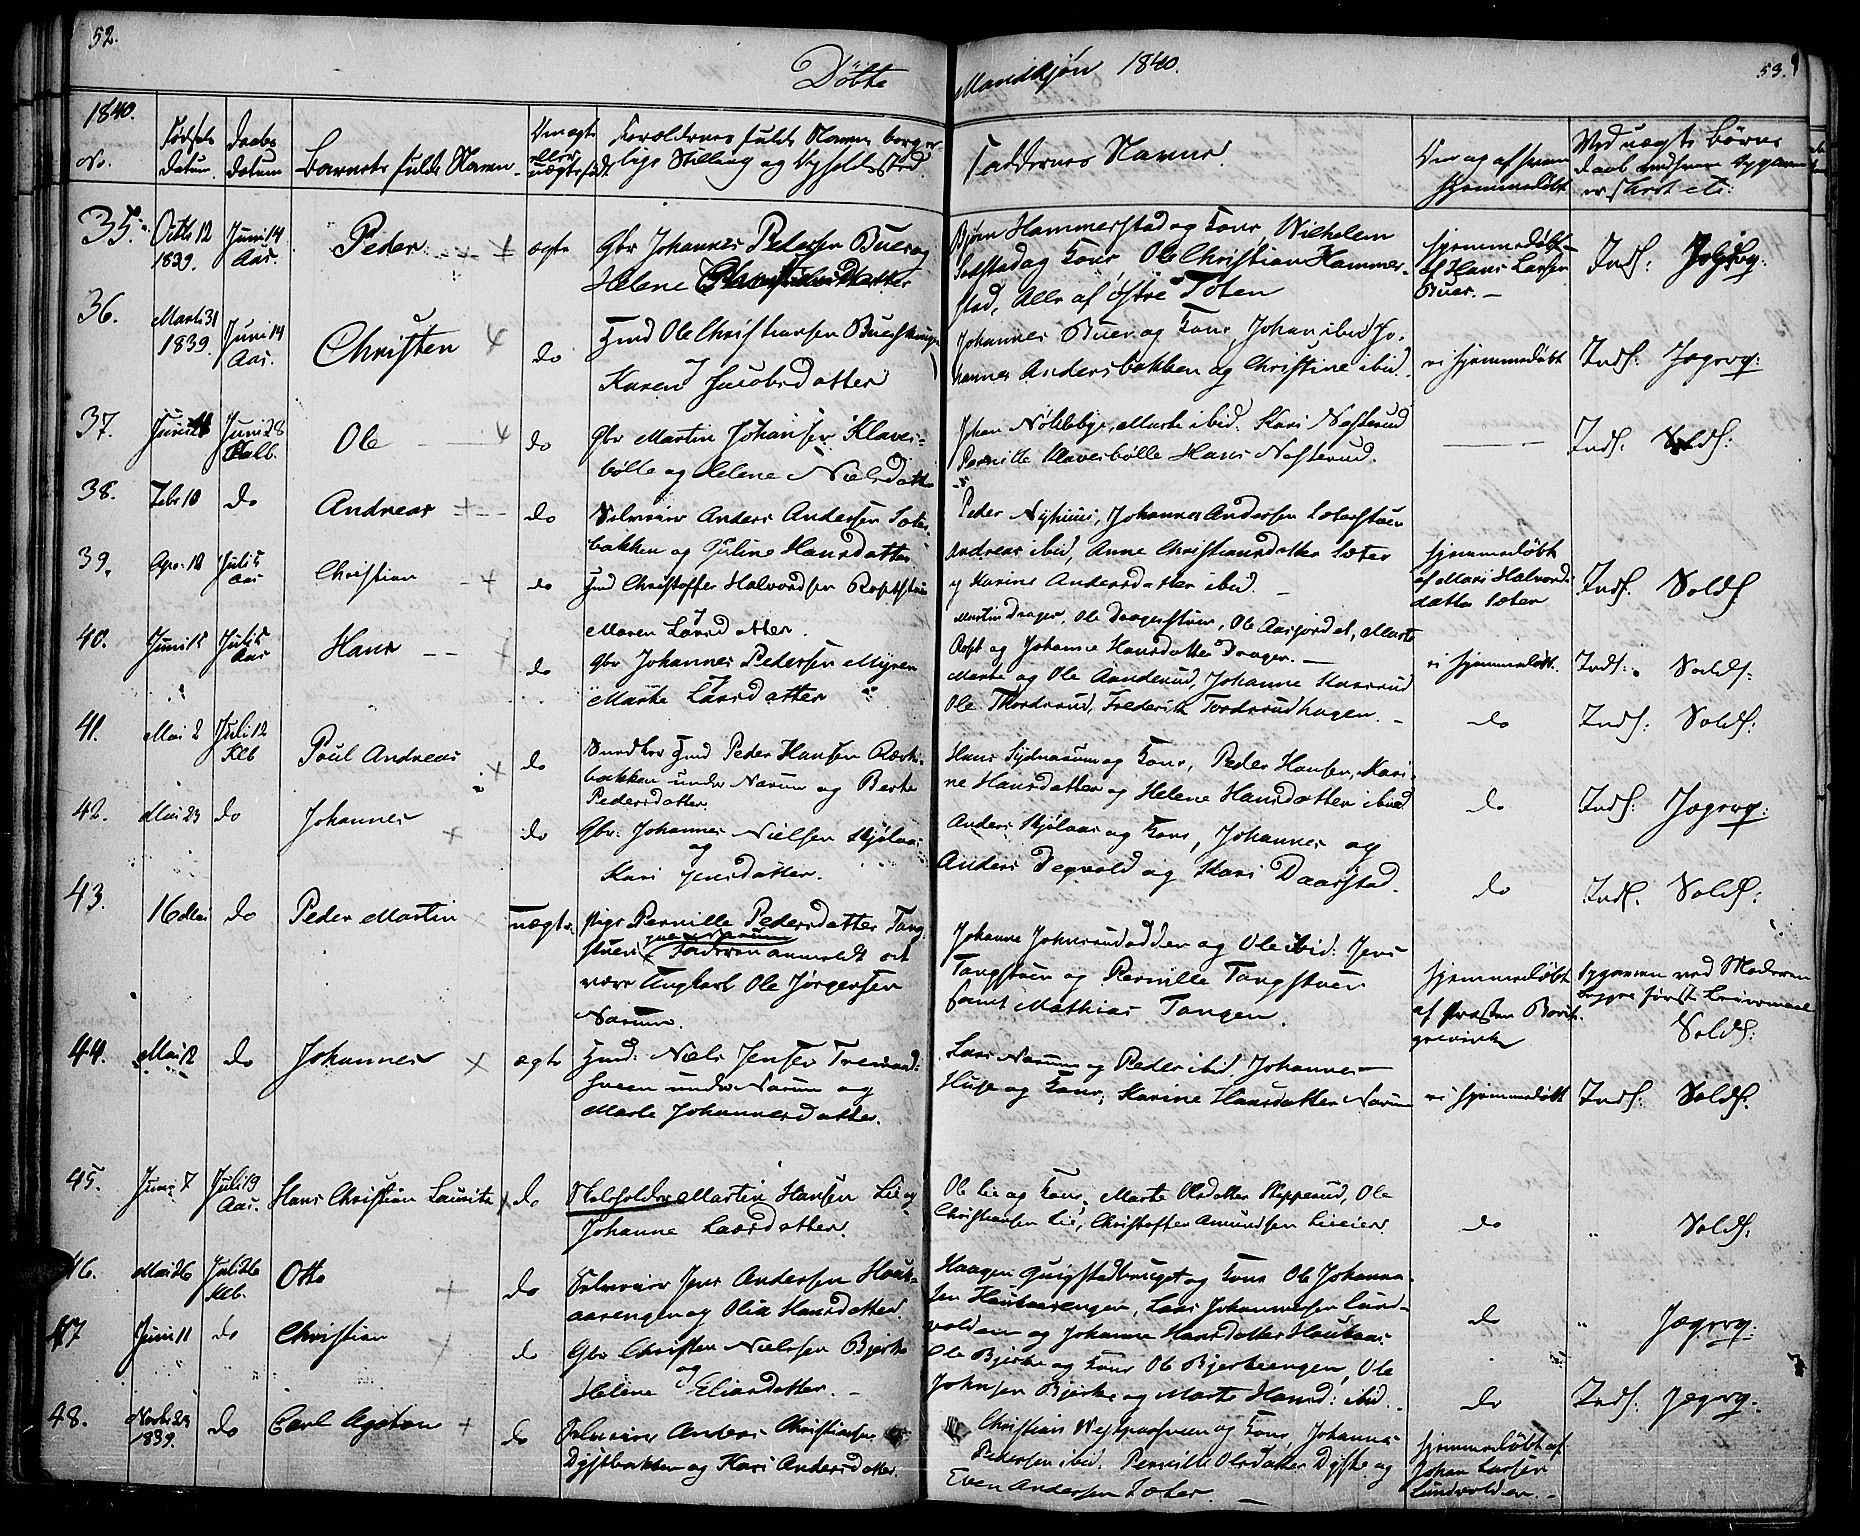 52.
Döbte
Mandkjøn 1840.
53.
1840.
No.
Fødsels Datum.
Daabs Datum
Barnets fulde Navn.
Om ægte eller uægte født
Forældrenes fulde Navne, borgerlige Stilling og Opholdssted.
Faddernes Navne.
Om og af hvem hjemmedøbt
Ved uægte Børns Daab
35.
Octb 12 1839.
Juni 14 Aas.
Peder
ægte
Gbr Johannes Pedersen Buer og
Helene
Bjørn Hammerstad og Kone, Wilhelm
og Kone Ole Christian Hammer-
stad, Alle af østre Toten
hjemmedøbt
af Hans Larsen
Buer.
Inds:
36.
Marts 31 1839.
Juni 14 Aas.
Christen
do
Hmd Ole Christiansen
og
Karen Jacobsdatter
Johannes Buer og Kone, Johan ibid Jo-
hannes Andersbakken og Christine ibid.
ei hjemmedøbt
Inds: Jægerg:
37.
Juni 28 Kolb.
Ole
do
Gbr Martin Johansen Klaves-
bølle og Helene Nielsdatter
Johan Nøkleby, Marte ibid. Kari Nesterud
Pernille Klavesbølle Hans Nesterud.
Inds: Solds:
38.
Febr 10
do
Andreas
do
Selveier Anders Andersen Sæter-
bakken og Guline Hansdatter
Peder Nyhuus, Johannes Andersen Sæterstuen
Andreas ibid, Anne Christiansdatter Sæter
og Karine Andersdatter ibid.
hjemmedøbt
af Mari Halvords-
datter Sæter
Inds: Solds:
39.
Apr: 18
Juli 5 Aas
Christian
do
Hmd Christoffer Halvordsen
og
Maren Larsdatter.
Martin Drager, Ole Dragerstuen, Ole Aasjordet, Marte
Rost og Johanne Hansdatter Drager.
ei hjemmedøbt.
Inds: Solds:
40.
Juni 15
Juli 5 Aas
Hans
do
Gbr Johannes Pedersen Myren
og
Marte Larsdatter
Marte og Ole Aanderud, Johanne Kaasrud
Ole Thordsrud, Frederik Tordsrudhagen.
do
Inds: Solds:
41.
Mai 2
Juli 12 Klb
Poul Andreas
do
Snedker Hmd Peder Hansen
bakken under Narum og Berte
Pedersdatter.
Hans Sydnarum og Kone, Peder Hansen, Kari-
ne Hansdatter og Helene Hansdatter ibid
do
Inds: Jægerg:
42.
Mai 23
do
Johannes
do
Gbr: Johannes Nielsen Kjølaas
og
Kari Jensdatter.
Anders Kjølaas og Kone, Johannes og
Anders Degvold og Kari Daarstad.
do
Inds. Solds.
43.
16 Mai
do
Peder Martin
uægte
Pige Pernille Pedersdatter Tang-
stuen Faderen anmeldt at
være Ungkarl Ole Jørgensen
Narum.
Johanne Johnsrudodden og Ole ibid: Jens
Tangstuen og Pernille Tangstuen
samt Mathias Tangen.
hjemmedøbt
af
ved Moderen
begges første Leiermaal
Solds:
44.
Mai 12
do
Johannes
ægte
Hmd: Niels Jensen
under Narum og
Marte Johannesdatter.
Lars Narum og Peder ibid Johannes
og Kone, Karine Hansdatter Narum
ei hjemmedøbt
Inds: Solds.
45.
Juni 7
Juli 19 Aas.
Hans Christian Lauritz
do
Skoleholder Martin Hansen Lie og
Johanne Larsdatter.
Ole Lie og Kone, Marte Olsdatter Kepperud, Ole
Christiansen Lie, Christoffer Amundsen Lieeier.
do
"
Solds:
46.
Mai 26
Juli 26 Klb.
Otto
do
Selveier Jens Andersen Hauk-
aasengen og Olia Hansdatter.
Haagen Quigstadbruget og Kone Ole Johanne-
sen Haukaasengen, Lars Johannesen Lund-
volden og Johanne Hansdatter Haukaas
do
"
Jægerg:
47
Juni 11
do
Christian
do
Gbr Christen Nielsen Bjerke
og
Helene Eliasdatter.
Ole Bjerke og Kone Ole Bjerkeengen, Ole
Johnsen Bjerke og Marte Hansd: ibid.
do
Inds: Jægerg:
48.
Novb: 23 1839.
do
Carl Agaton
do
Selveier Anders Christiansen
Dystbakken og Kari Andersdatter.
Christian og Kone, Johannes
Pedersen ibid. Pernille Olsdatter Dyste og
Even Andersen Sæter.
hjemmedøbt af
Johan Larsen
Lundvolden.